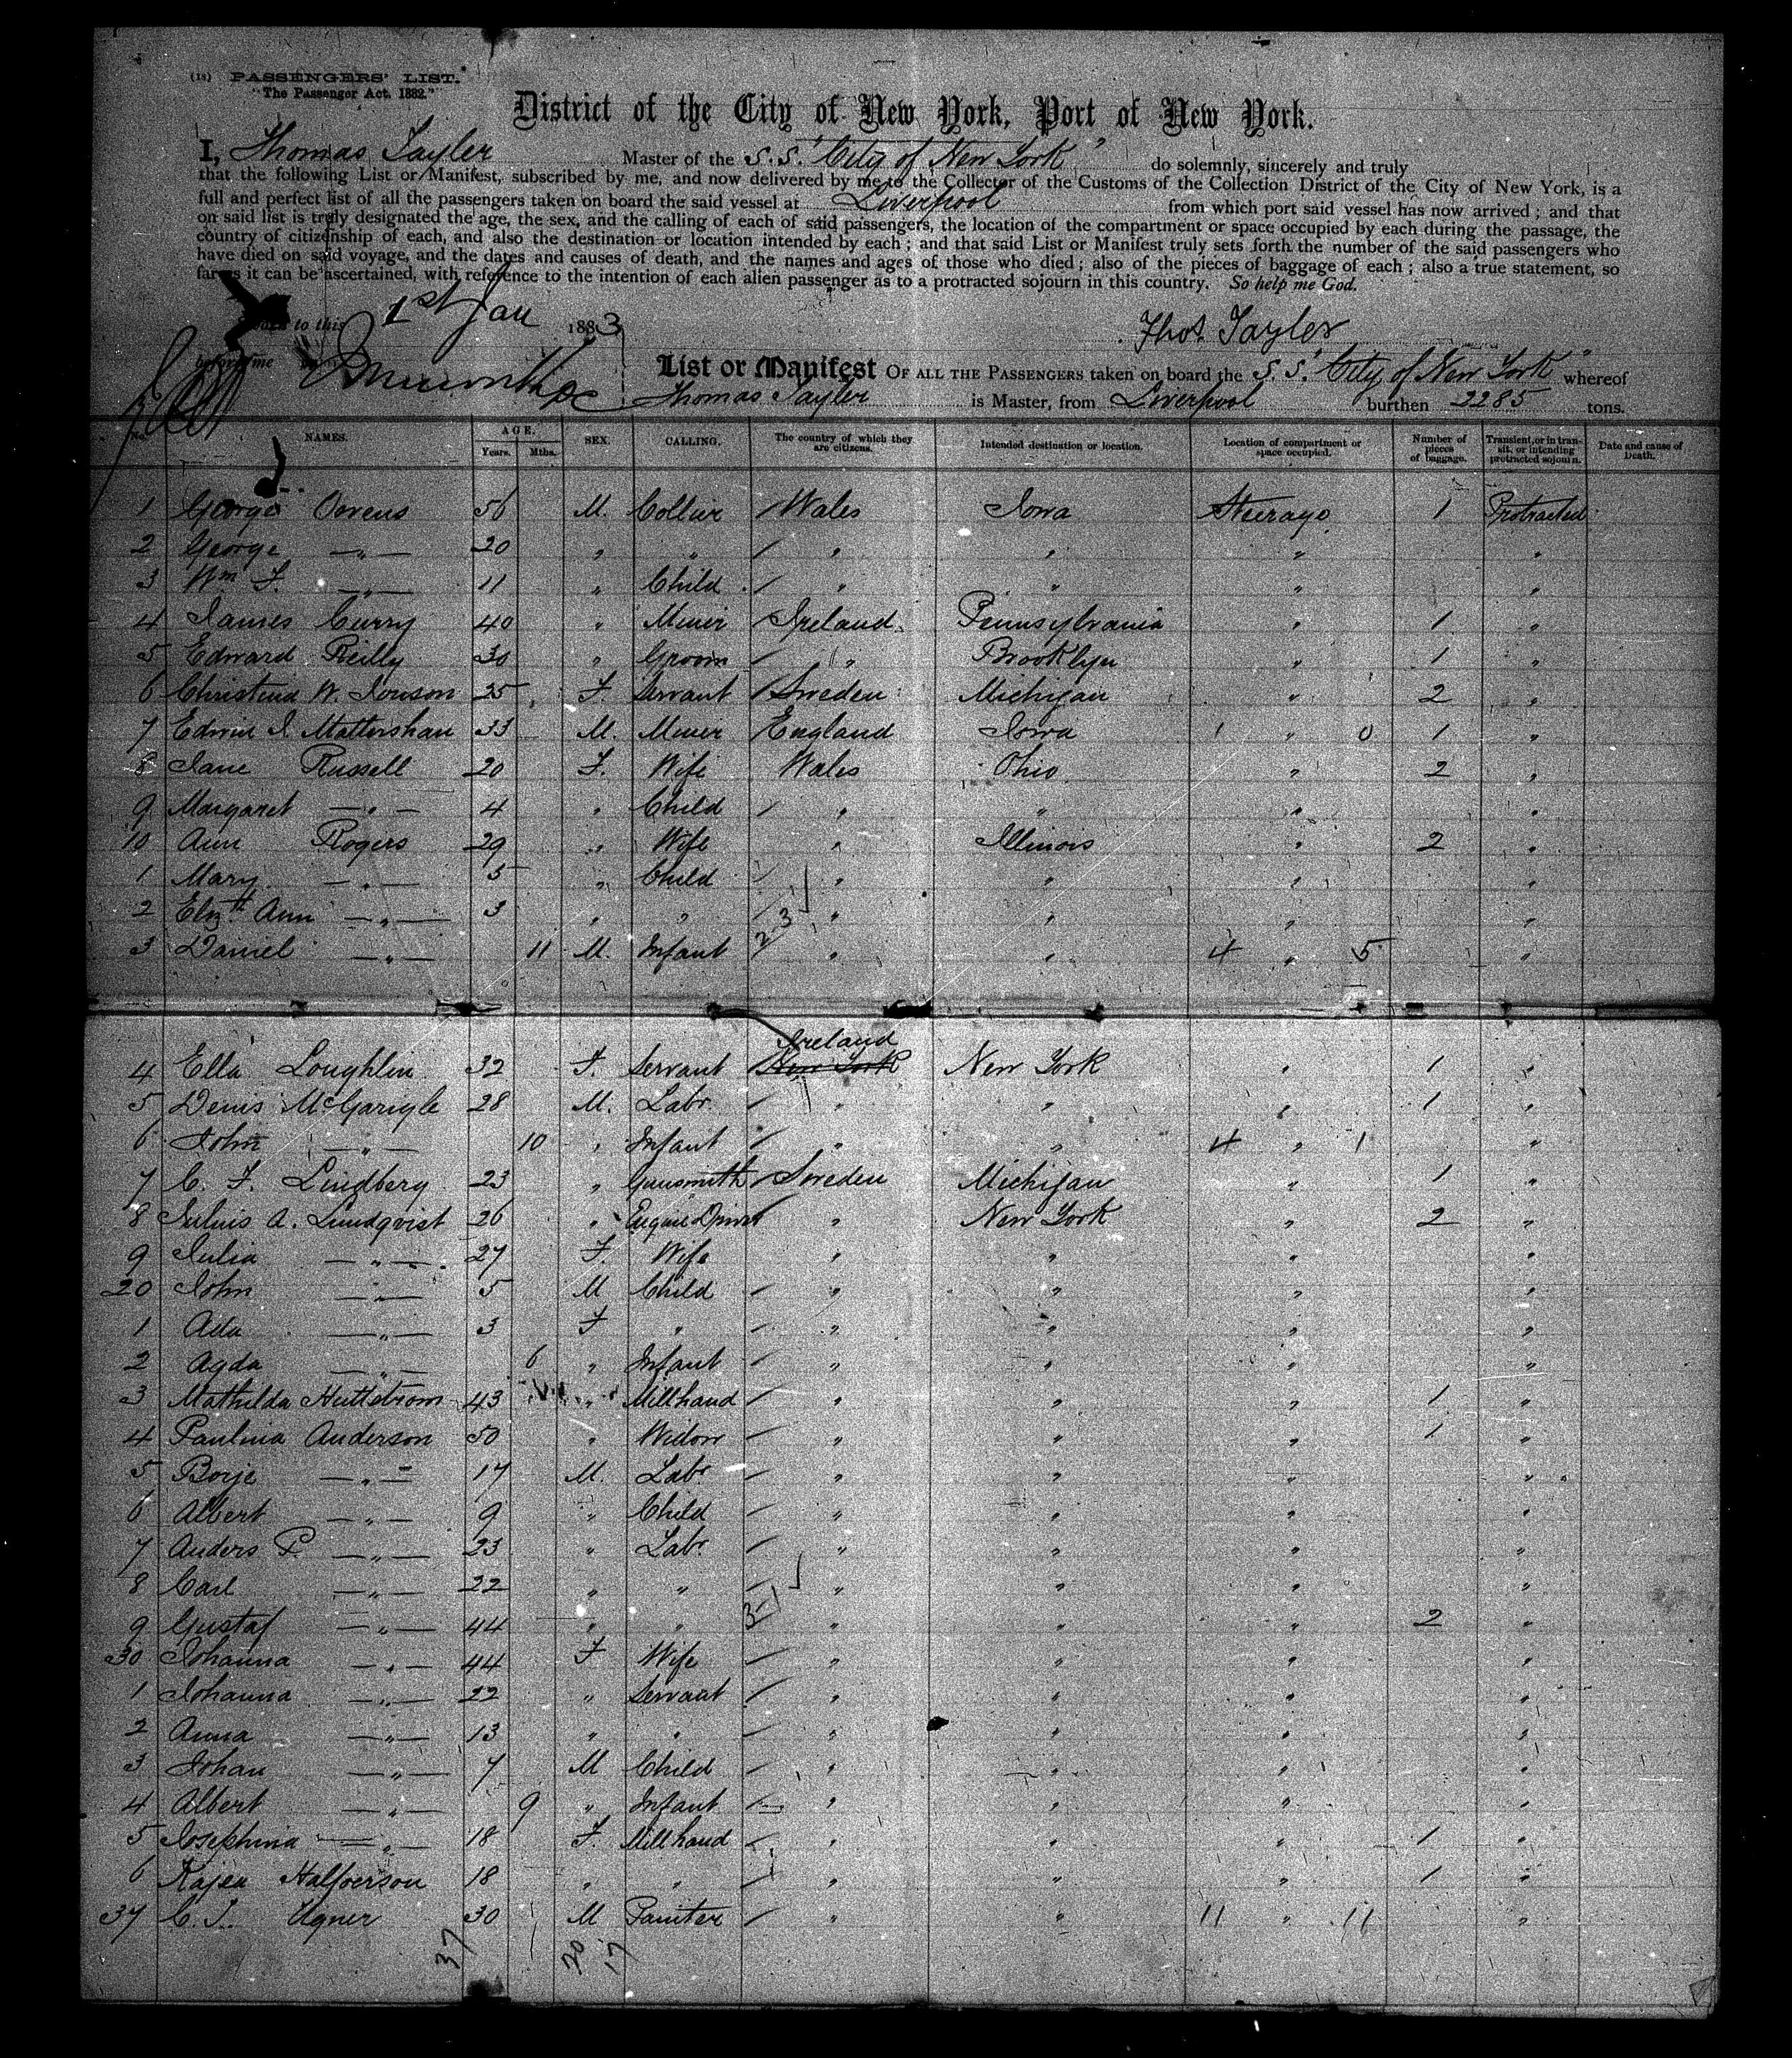 (18) PASSENGERS' LIST.
"The Passenger Act, 1882."
District of the City of New York, Port of New York.
I, Thomas Tayler Master of the S.S. "City of New York" do solemnly, sincerely and truly
that the following List or Manifest, subscribed by me, and now delivered by me to the Collector of the Customs of the Collection District of the City of New York, is a
full and perfect list of all the passengers taken on board the said vessel at Liverpool from which port said vessel has now arrived; and that
on said list is truly designated the age, the sex, and the calling of each of said passengers, the location of the compartment or space occupied by each during the passage, the
country of citizenship of each, and also the destination or location intended by each; and that said List or Manifest truly sets forth the number of the said passengers who
have died on said voyage, and the dates and causes of death, and the names and ages of those who died; also of the pieces of baggage of each; also a true statement, so
far as it can be ascertained, with reference to the intention of each alien passenger as to a protracted sojourn in this country. So help me God.
to this 1st Jan 1883 Thos. Tayler
before me
List or Manifest OF ALL THE PASSENGERS taken on board the S.S. "City of New York" whereof
Thomas Tayler is Master, from Liverpool burthen 2285 tons.
No. NAMES. AGE. Years. Mths. SEX. CALLING. The country of which they are citizens. Intended destination or location. Location of compartment or space occupied. Number of pieces of baggage. Transient, or in transit, or intending protracted sojourn. Date and cause of Death.
1 George Owens 56 M. Collier Wales Iowa Steerage 1 Protracted
2 George —"— 20 " " " " " "
3 Wm F. —"— 11 " Child " " " "
4 James Curry 40 " Miner Ireland Pennsylvania " 1 "
5 Edward Reilly 30 " Groom " Brooklyn " 1 "
6 Christina W. Jonson 25 F. Servant Sweden Michigan " 2 "
7 Edwin J. Mattershan 33 M. Miner England Iowa 1 " 0 1 "
8 Jane Russell 20 F. Wife Wales Ohio " 2 "
9 Margaret —"— 4 " Child " " " "
10 Ann Rogers 29 " Wife " Illinois " 2 "
1 Mary —"— 5 " Child " " " "
2 Elizth Ann —"— 3 " " " " " "
3 Daniel —"— 11 M. Infant " " 4 " 5 "
4 Ella Loughlin 32 F. Servant Ireland New York New York " 1 "
5 Denis McGarigle 28 M. Labr. " " " 1 "
6 John —"— 10 " Infant " " 4 " 1 "
7 C. F. Lindberg 23 " Gunsmith Sweden Michigan " 1 "
8 Julius A. Lundqvist 26 " Engine Driver " New York " 2 "
9 Julia —"— 27 F. Wife " " " "
20 John —"— 5 M Child " " " "
1 Ada —"— 3 F " " " " "
2 Agda —"— 6 " Infant " " " "
3 Mathilda Huttstrom 43 " Millhand " " " 1 "
4 Paulina Anderson 50 " Widow " " " 1 "
5 Borje —"— 17 M. Labr " " " "
6 Albert —"— 9 " Child " " " "
7 Anders P. —"— 23 " Labr. " " " "
8 Carl —"— 22 " " " " " "
9 Gustaf —"— 44 " " " " " 2 "
30 Johanna —"— 44 F Wife " " " "
1 Johanna —"— 22 " Servant " " " "
2 Anna —"— 13 " " " " " "
3 Johan —"— 7 M Child " " " "
4 Albert —"— 9 " Infant " " " "
5 Josephina —"— 18 F. Millhand " " " 1 "
6 Kajsa Halfverson 18 " " " " " 1 "
37 C. J. Ugner 30 M Painter " " 11 " 11 "
37 20 17